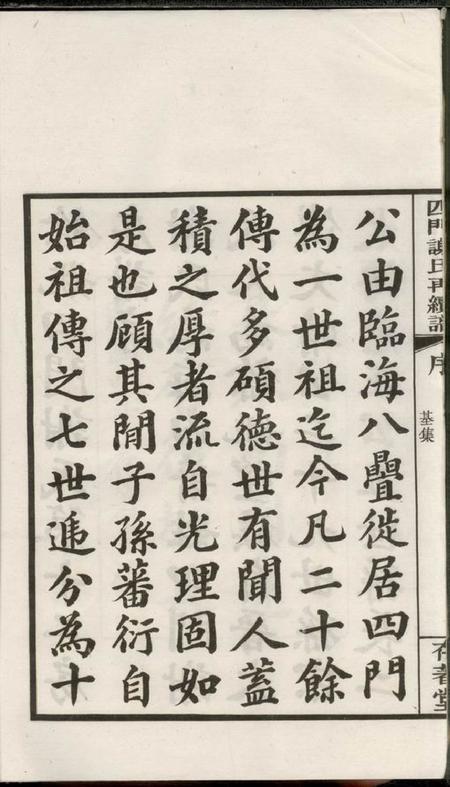 四門謝氏再續譜
序
基集
公由臨海八疊徙居四門
為一世祖迄今凡二十餘
傳代多碩德世有聞人蓋
積之厚者流自光理固如
是也顧其閒子孫蕃衍自
始祖傳之七世遞分為十
存著堂